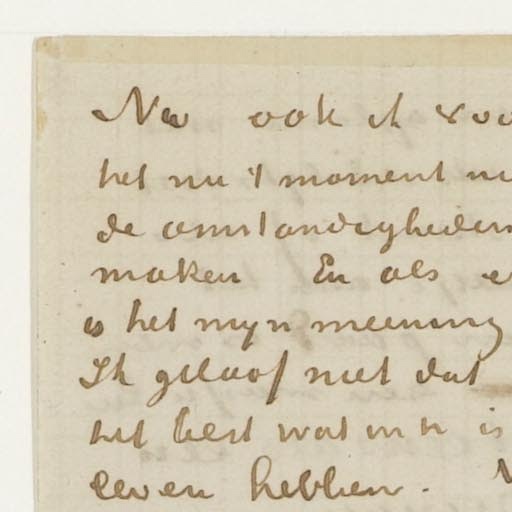 Nu ook ik voo
het nu 't moment ni
de omstandigheden
maken En als e
is het mijn meening
Ik geloof niet dat
het best wat in is
leven hebben.